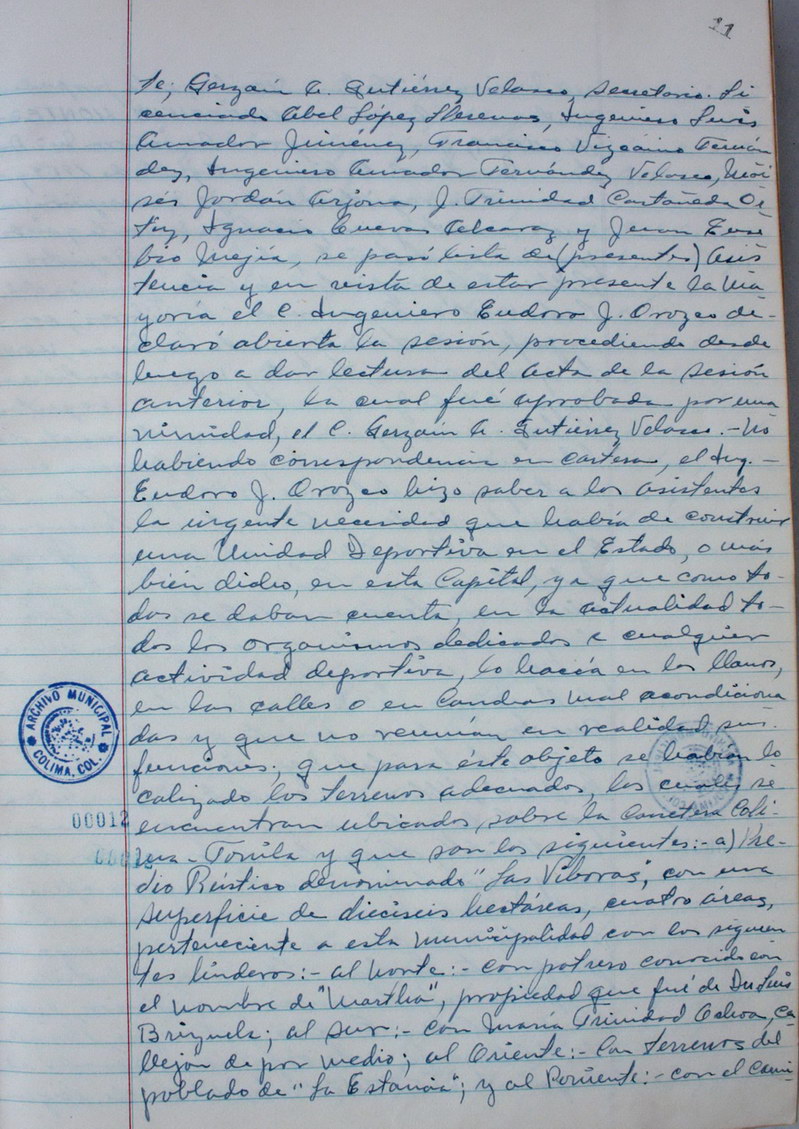 11
te; Gerzaín A. Gutiérrez Velasco, Secretario. Li
cenciado Abel López Llerenas, Ingeniero Luis
Amador Jiménez, Francisco Vizcaíno Fernán
dez, Ingeniero Amador Fernández Velasco, Moi
sés Jordán Arjona, J. Trinidad Castañeda Or
tiz, Ignacio Cuevas Alcaraz y Juan Euse
bio Mejía, se pasó lista de (presentes) Asis
tencia y en vista de estar presente la ma
yoría el C. Ingeniero Eudoro J. Orozco de-
claró abierta la sesión, procediendo desde
luego a dar lectura del acta de la sesión
anterior, la cual fué aprobada por una
nimidad, el C. Gerzaín A. Gutiérrez Velasco.- No
habiendo correspondencia en cartera, el Ing.-
Eudoro J. Orozco hizo saber a los asistentes
la urgente necesidad que había de construir
una Unidad Deportiva en el Estado, o más
bien dicho, en esta Capital, ya que como to-
dos se daban cuenta, en la actualidad to-
dos los organismos dedicados a cualquier
actividad deportiva, lo hacía en los llanos,
en las calles o en canchas mal acondiciona
das y que no reunían en realidad sus
funciones; que para éste objeto se habían lo
calizado los terrenos adecuados, los cuales se
encuentran ubicados sobre la Carretera Coli-
ma - Tonila y que son los siguientes:- a) Pre-
dio Rústico denominado "Las Víboras", con una
superficie de dieciseis hectáreas, cuatro áreas,
perteneciente a esta Municipalidad con los siguien
tes linderos:- al Norte:- con potrero conocido con
el nombre de "Martha", propiedad que fué de Dn Luis
Brizuela; al Sur:- con María Trinidad Ochoa, ca
llejón de por medio; al Oriente:- con terrenos del
poblado de "La Estancia"; y al Poniente:- con el cami-
ARCHIVO MUNICIPAL
COLIMA, COL.
00012